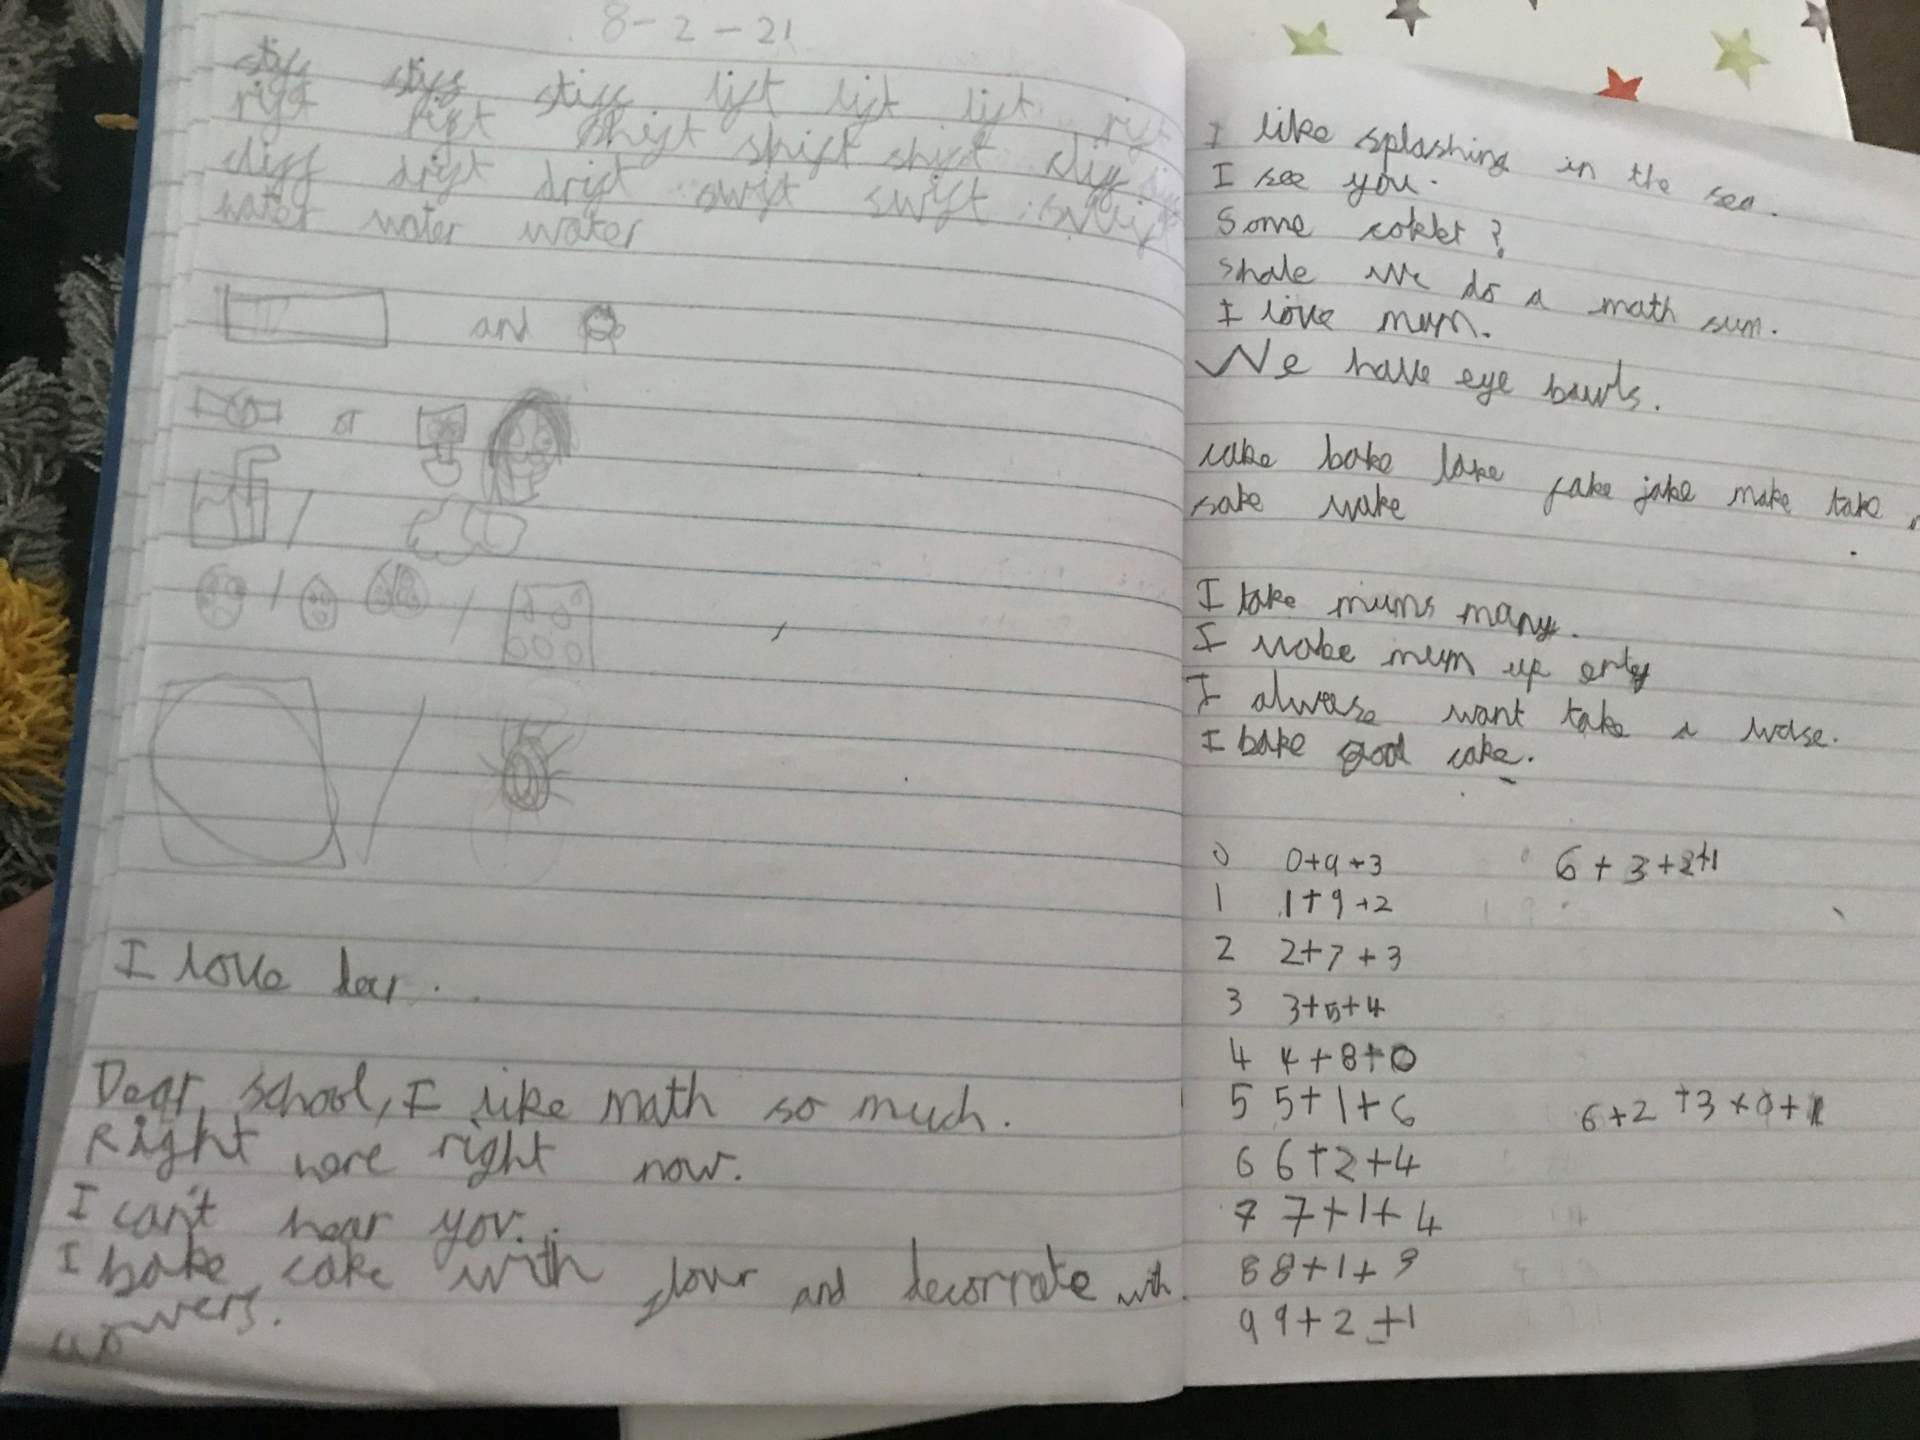 8-2-21
stiff stiff stiff lift lift lift rift
rift rift shift shift shift cliff
cliff drift drift swift swift
water water water
and
or
I love
Dear school, I like math so much.
Right here right now.
I can't hear you.
I bake cake with flour and decorrate with
I like splashing in the sea.
I see you.
Some coklet?
shale we do a math sum.
I love mum.
We have eye bawls.
cake bake lake fake jake make take
sake wake
I take mums many.
I wake mum up erly
I alwase want take a
I bake good cake.
0 0+9+3 6+3+2+1
1 1+9+2
2 2+7+3
3 3+5+4
4 4+8+0
5 5+1+6 6+2+3+0+1
6 6+2+4
7 7+1+4
8 8+1+3
9 9+2+1